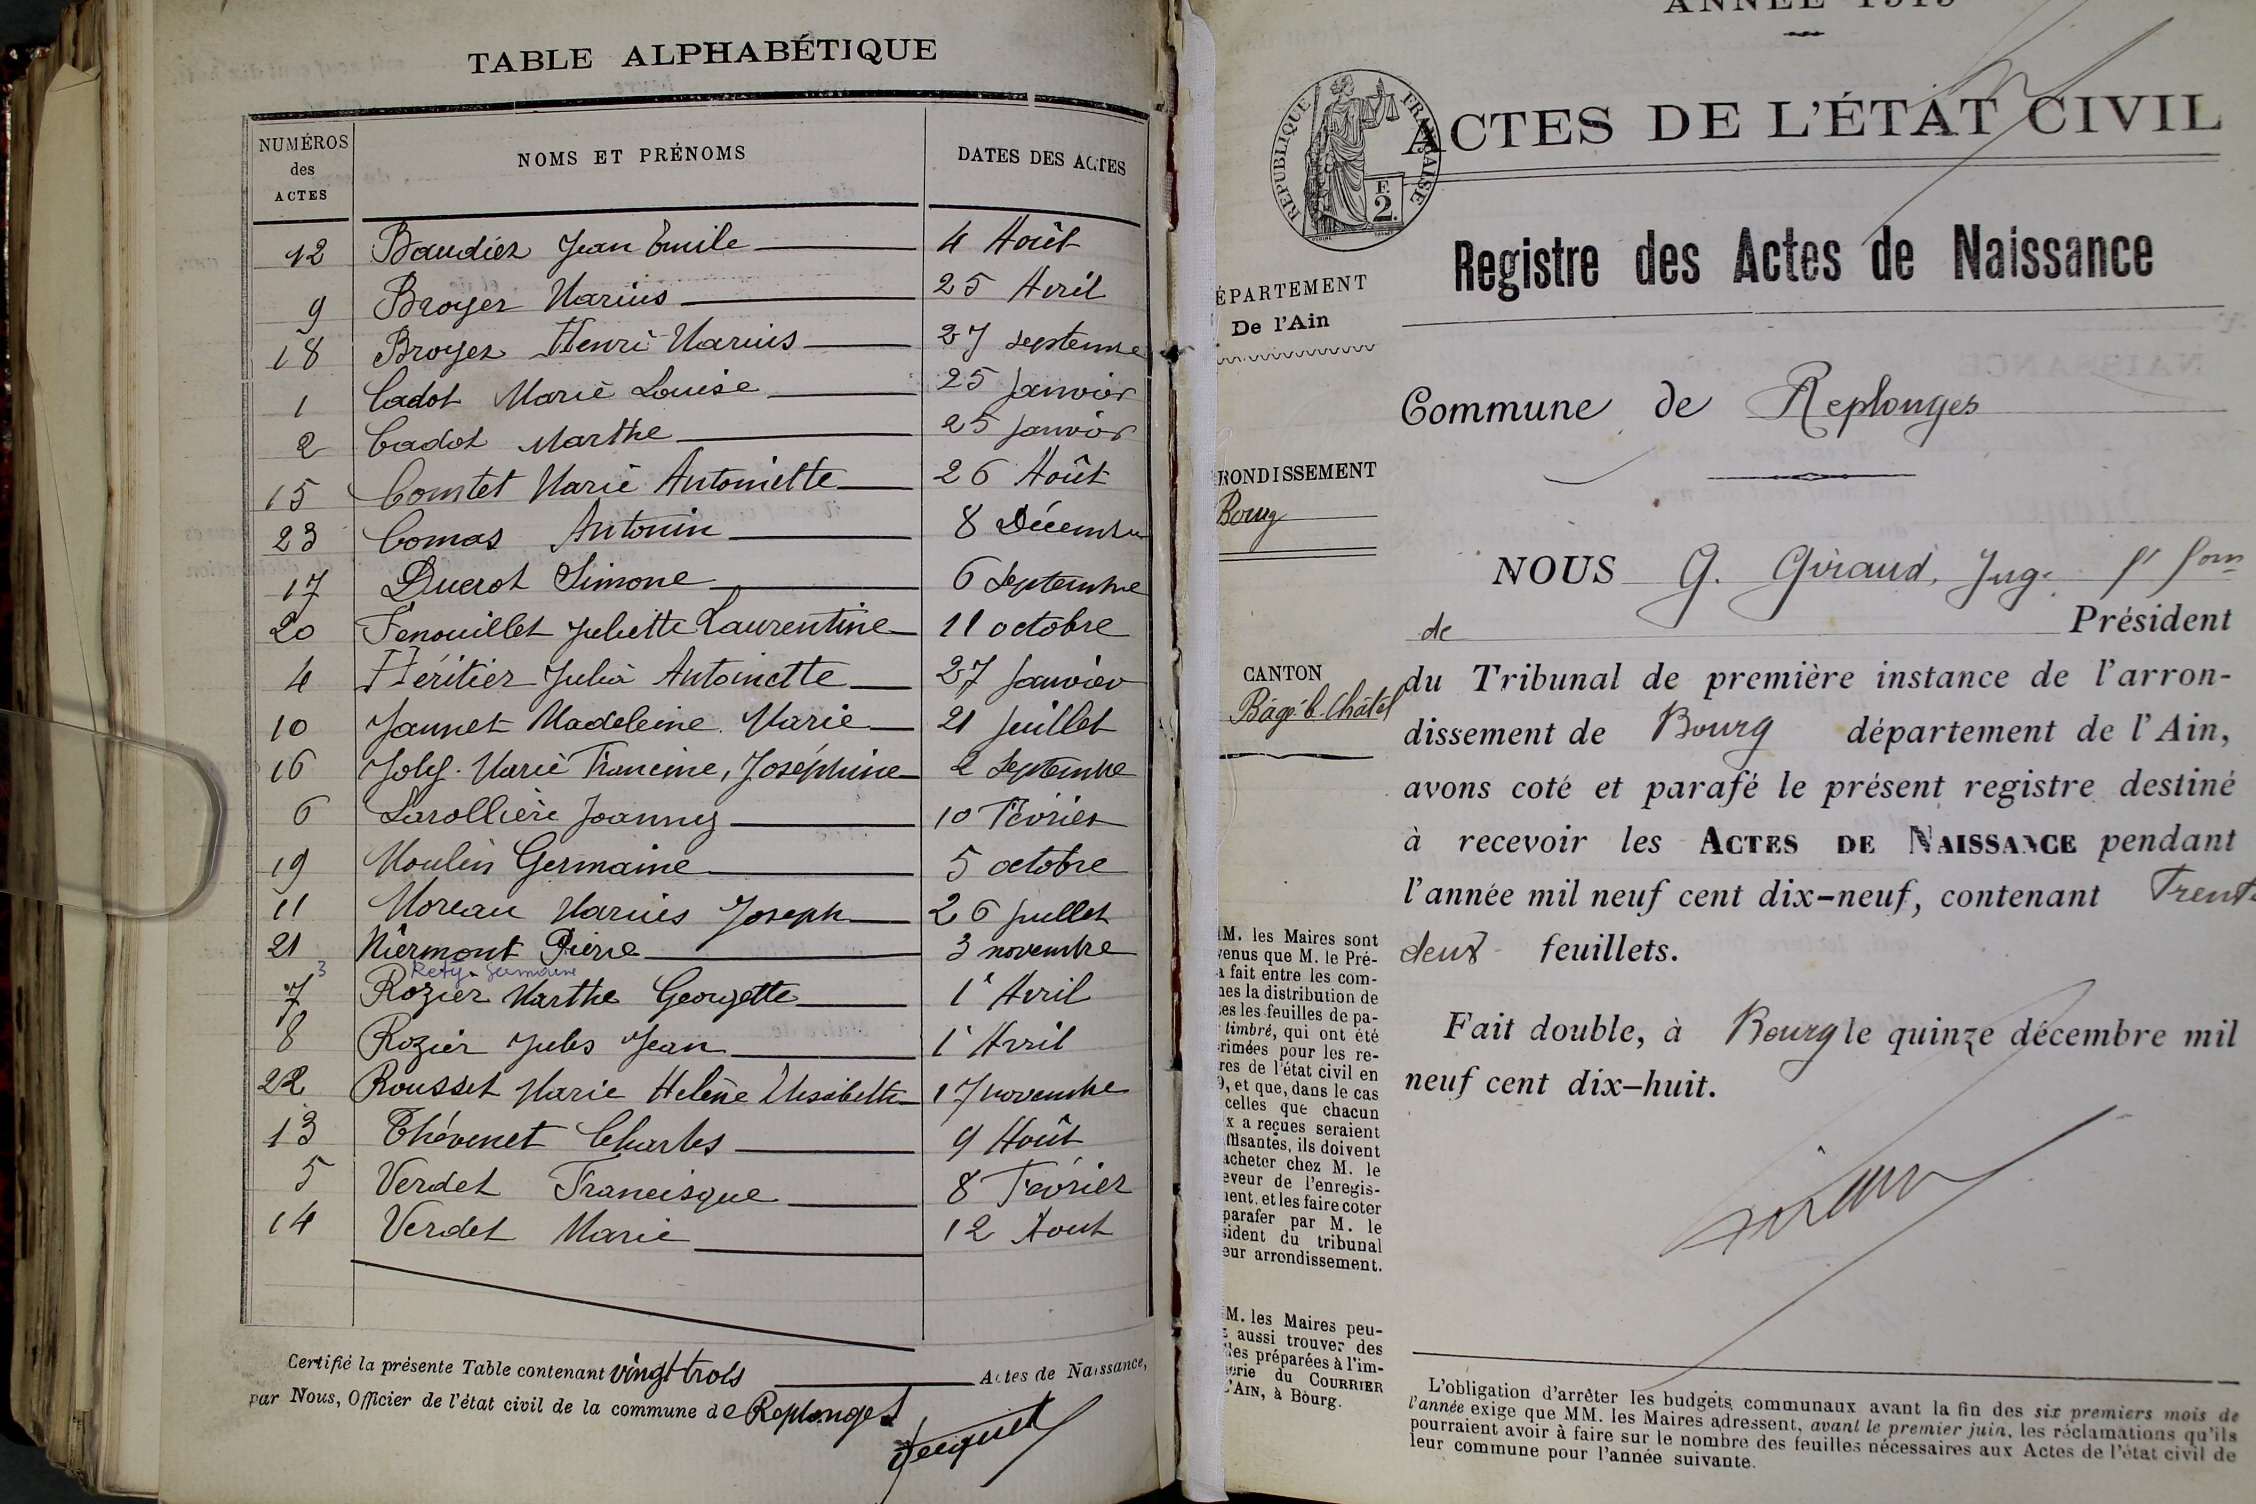 TABLE ALPHABÉTIQUE
NUMÉROS des ACTES NOMS ET PRÉNOMS DATES DES ACTES
12 Baudier Jean Emile 4 Août
9 Broyer Marius 25 Avril
18 Broyer Henri Marius 27 septembre
1 Cadot Marie Louise 25 Janvier
2 Cadot Marthe 25 Janvier
15 Comtet Marie Antoinette 26 Août
23 Comas Antonin 8 Décembre
17 Ducrot Simone 6 Septembre
20 Fenouillet Juliette Laurentine 11 octobre
4 Héritier Julia Antoinette 27 Janvier
10 Jannet Madeleine Marie 21 Juillet
16 Joly Marie Francine, Joséphine 2 Septembre
6 Larollière Joanny 10 Février
19 Moulin Germaine 5 octobre
11 Moreau Marius Joseph 26 Juillet
21 Niermont Pierre 3 novembre
3 Rety Germaine
7 Rozier Marthe Georgette 1er Avril
8 Rozier Jules Jean 1er Avril
22 Rousset Marie Helène Elisabeth 17 novembre
13 Thévenet Charles 9 Août
5 Verdet Francisque 8 Février
14 Verdet Marie 12 Aout
Certifié la présente Table contenant vingt trois Actes de Naissance,
par Nous, Officier de l'état civil de la commune de Replonges
ANNÉE 1919
ACTES DE L'ÉTAT CIVIL
RÉPUBLIQUE FRANÇAISE
F. 2.
Registre des Actes de Naissance
ÉPARTEMENT
De l'Ain
Commune de Replonges
RONDISSEMENT
Bourg
NOUS G. Giraud, Jug.
de Président
CANTON
Bâgé-le-Châtel
du Tribunal de première instance de l'arron-
dissement de Bourg département de l'Ain,
avons coté et parafé le présent registre destiné
à recevoir les ACTES DE NAISSANCE pendant
l'année mil neuf cent dix-neuf, contenant Trente
deux feuillets.
Fait double, à Bourg le quinze décembre mil
neuf cent dix-huit.
MM. les Maires sont
venus que M. le Pré-
a fait entre les com-
nes la distribution de
es les feuilles de pa-
timbré, qui ont été
rimées pour les re-
res de l'état civil en
9, et que, dans le cas
celles que chacun
x a reçues seraient
ffisantes, ils doivent
acheter chez M. le
eveur de l'enregis-
ment, et les faire coter
parafer par M. le
sident du tribunal
eur arrondissement.
M. les Maires peu-
aussi trouver des
les préparées à l'im-
erie du COURRIER
L'AIN, à Bourg.
L'obligation d'arrêter les budgets communaux avant la fin des six premiers mois de
l'année exige que MM. les Maires adressent, avant le premier juin, les réclamations qu'ils
pourraient avoir à faire sur le nombre des feuilles nécessaires aux Actes de l'état civil de
leur commune pour l'année suivante.